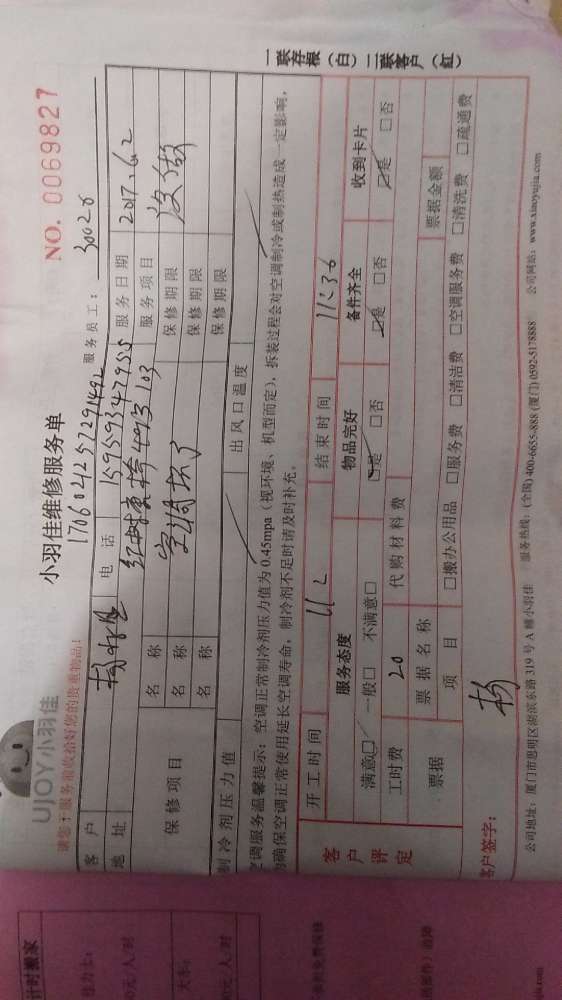 UJOY小羽佳
小羽佳维修服务单
NO. 0069827
请您于服务前收拾好您的贵重物品!
1706042572291492
服务员工: 30026
客户
电话 15959347955
服务日期 2017.6.2
地址
103
服务项目
保修项目
名称 空调坏了 保修期限 没做
名称 保修期限
名称 保修期限
制冷剂压力值 出风口温度
空调服务温馨提示: 空调正常制冷剂压力值为0.45mpa(视环境、机型而定),拆装过程会对空调制冷或制热造成一定影响,
为确保空调正常使用延长空调寿命,制冷剂不足时请及时补充。
一联存根(白)二联客户(红)
客户评定
开工时间 结束时间 11:36
服务态度 物品完好 备件齐全 收到卡片
满意☑ 一般□ 不满意□ ☑是 □否 ☑是 □否 ☑是 □否
工时费 20 代购材料费
票据 票据名称 票据金额
项目 □搬办公用品 □服务费 □清洁费 □空调服务费 □清洗费 □疏通费
客户签字: 杨
公司地址: 厦门市思明区湖滨东路319号A幢小羽佳 服务热线: (全国)400-6655-888 (厦门)0592-5178888 公司网站: www.xiaoyujia.com
计时搬家
0元/人/时
大车:
0元/人/时